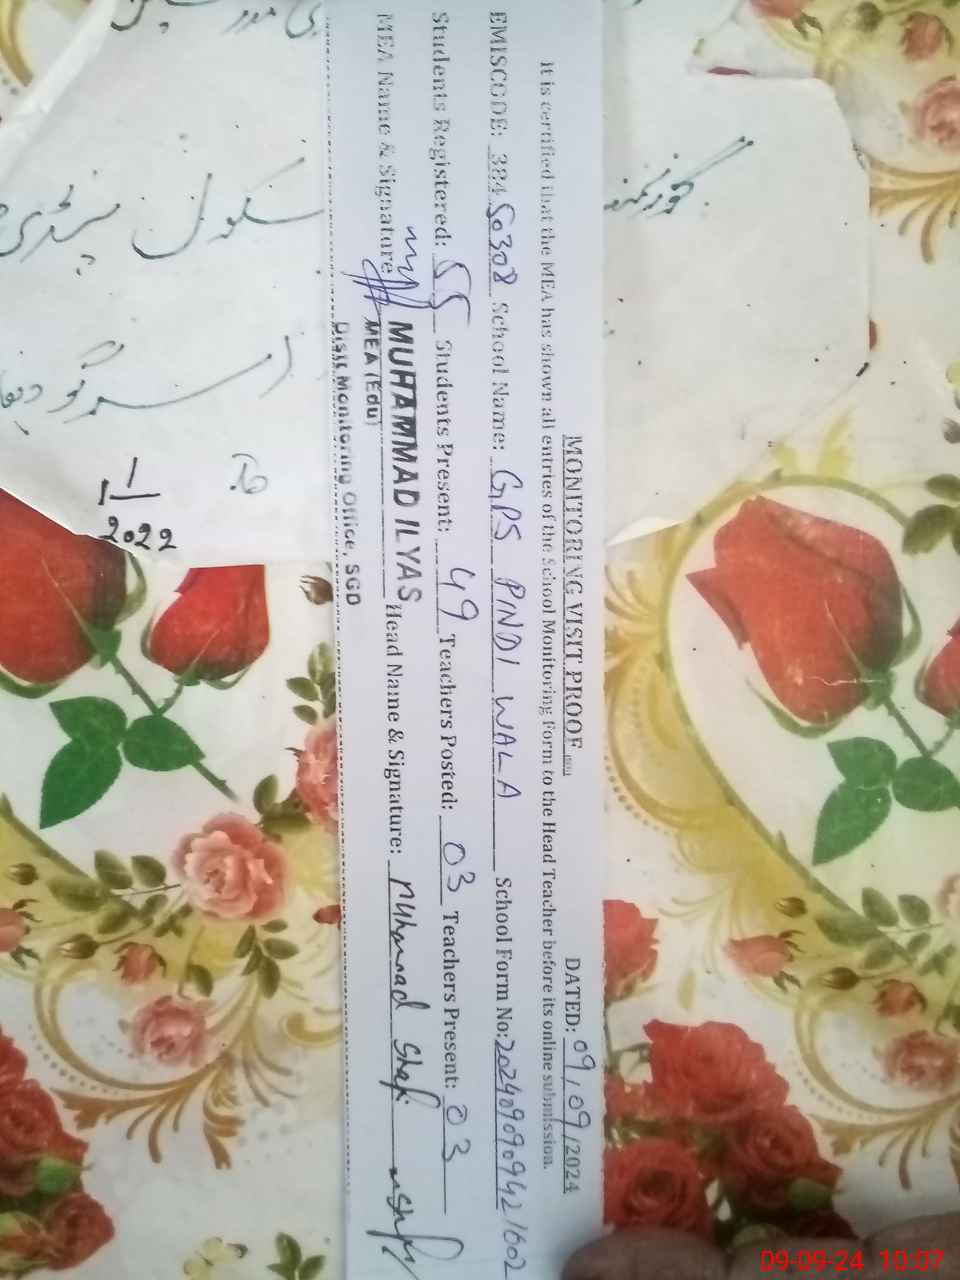 MONITORING VISIT PROOF DATED: 09/09/2024
It is certified that the MEA has shown all entries of the School Monitoring Form to the Head Teacher before its online submission.
EMISCODE: 38450308 School Name: GPS PINDI WALA School Form No: 202409090942/1602
Students Registered: 55 Students Present: 49 Teachers Posted: 03 Teachers Present: 03
MEA Name & Signature MUHAMMAD ILYAS Head Name & Signature: Muhammad Shafi
MEA (Edu)
Distt Monitoring Office, SGD
گورنمنٹ
سکول
1
2022
09-09-24 10:07